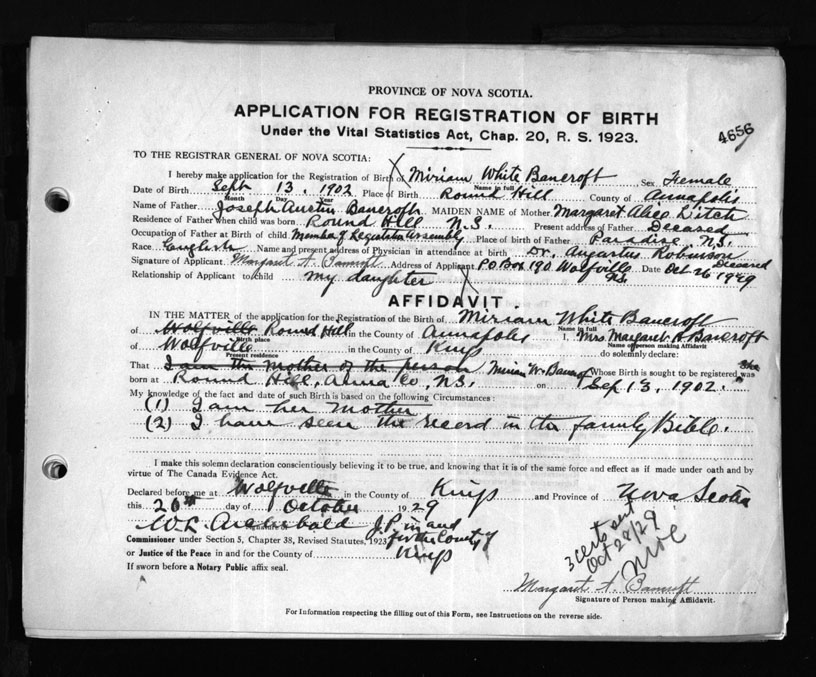 PROVINCE OF NOVA SCOTIA.
APPLICATION FOR REGISTRATION OF BIRTH
Under the Vital Statistics Act, Chap. 20, R. S. 1923.
4656
TO THE REGISTRAR GENERAL OF NOVA SCOTIA:
I hereby make application for the Registration of Birth of Miriam White Bancroft Sex Female
Name in full
Date of Birth Sept 13, 1902 Place of Birth Round Hill County of Annapolis
Month Day Year
Name of Father Joseph Austin Bancroft MAIDEN NAME of Mother Margaret Alice
Residence of Father when child was born Round Hill N.S. Present address of Father Deceased
Occupation of Father at Birth of child Member of Legislative Assembly Place of birth of Father Paradise N.S.
Race English Name and present address of Physician in attendance at birth Dr. Augustus Robinson Deceased
Signature of Applicant Margaret A. Bancroft Address of Applicant PO Box 190 Wolfville N.S. Date Oct 26 1929
Relationship of Applicant to child my daughter
AFFIDAVIT
IN THE MATTER of the application for the Registration of the Birth of Miriam White Bancroft
of Wolfville Round Hill in the County of Annapolis I, Mrs. Margaret A Bancroft
Birth place Name of person making Affidavit
of Wolfville in the County of Kings do solemnly declare:
Present residence
That I am the mother of the person Miriam W. Bancroft Whose Birth is sought to be registered she was
born at Round Hill, Anna Co, N.S. on Sep 13, 1902.
My knowledge of the fact and date of such Birth is based on the following Circumstances:
(1) I am her mother
(2) I have seen the record in the family Bible.
I make this solemn declaration conscientiously believing it to be true, and knowing that it is of the same force and effect as if made under oath and by
virtue of The Canada Evidence Act.
Declared before me at Wolfville in the County of Kings and Province of Nova Scotia
this 26th day of October 1929
W.L. Archibald J.P. in and
Signature of
Commissioner under Section 5, Chapter 38, Revised Statutes, 1923 for the County of
or Justice of the Peace in and for the County of Kings
If sworn before a Notary Public affix seal.
3 certs sent
Oct 28/29
Margaret A. Bancroft
Signature of Person making Affidavit.
For Information respecting the filling out of this Form, see Instructions on the reverse side.